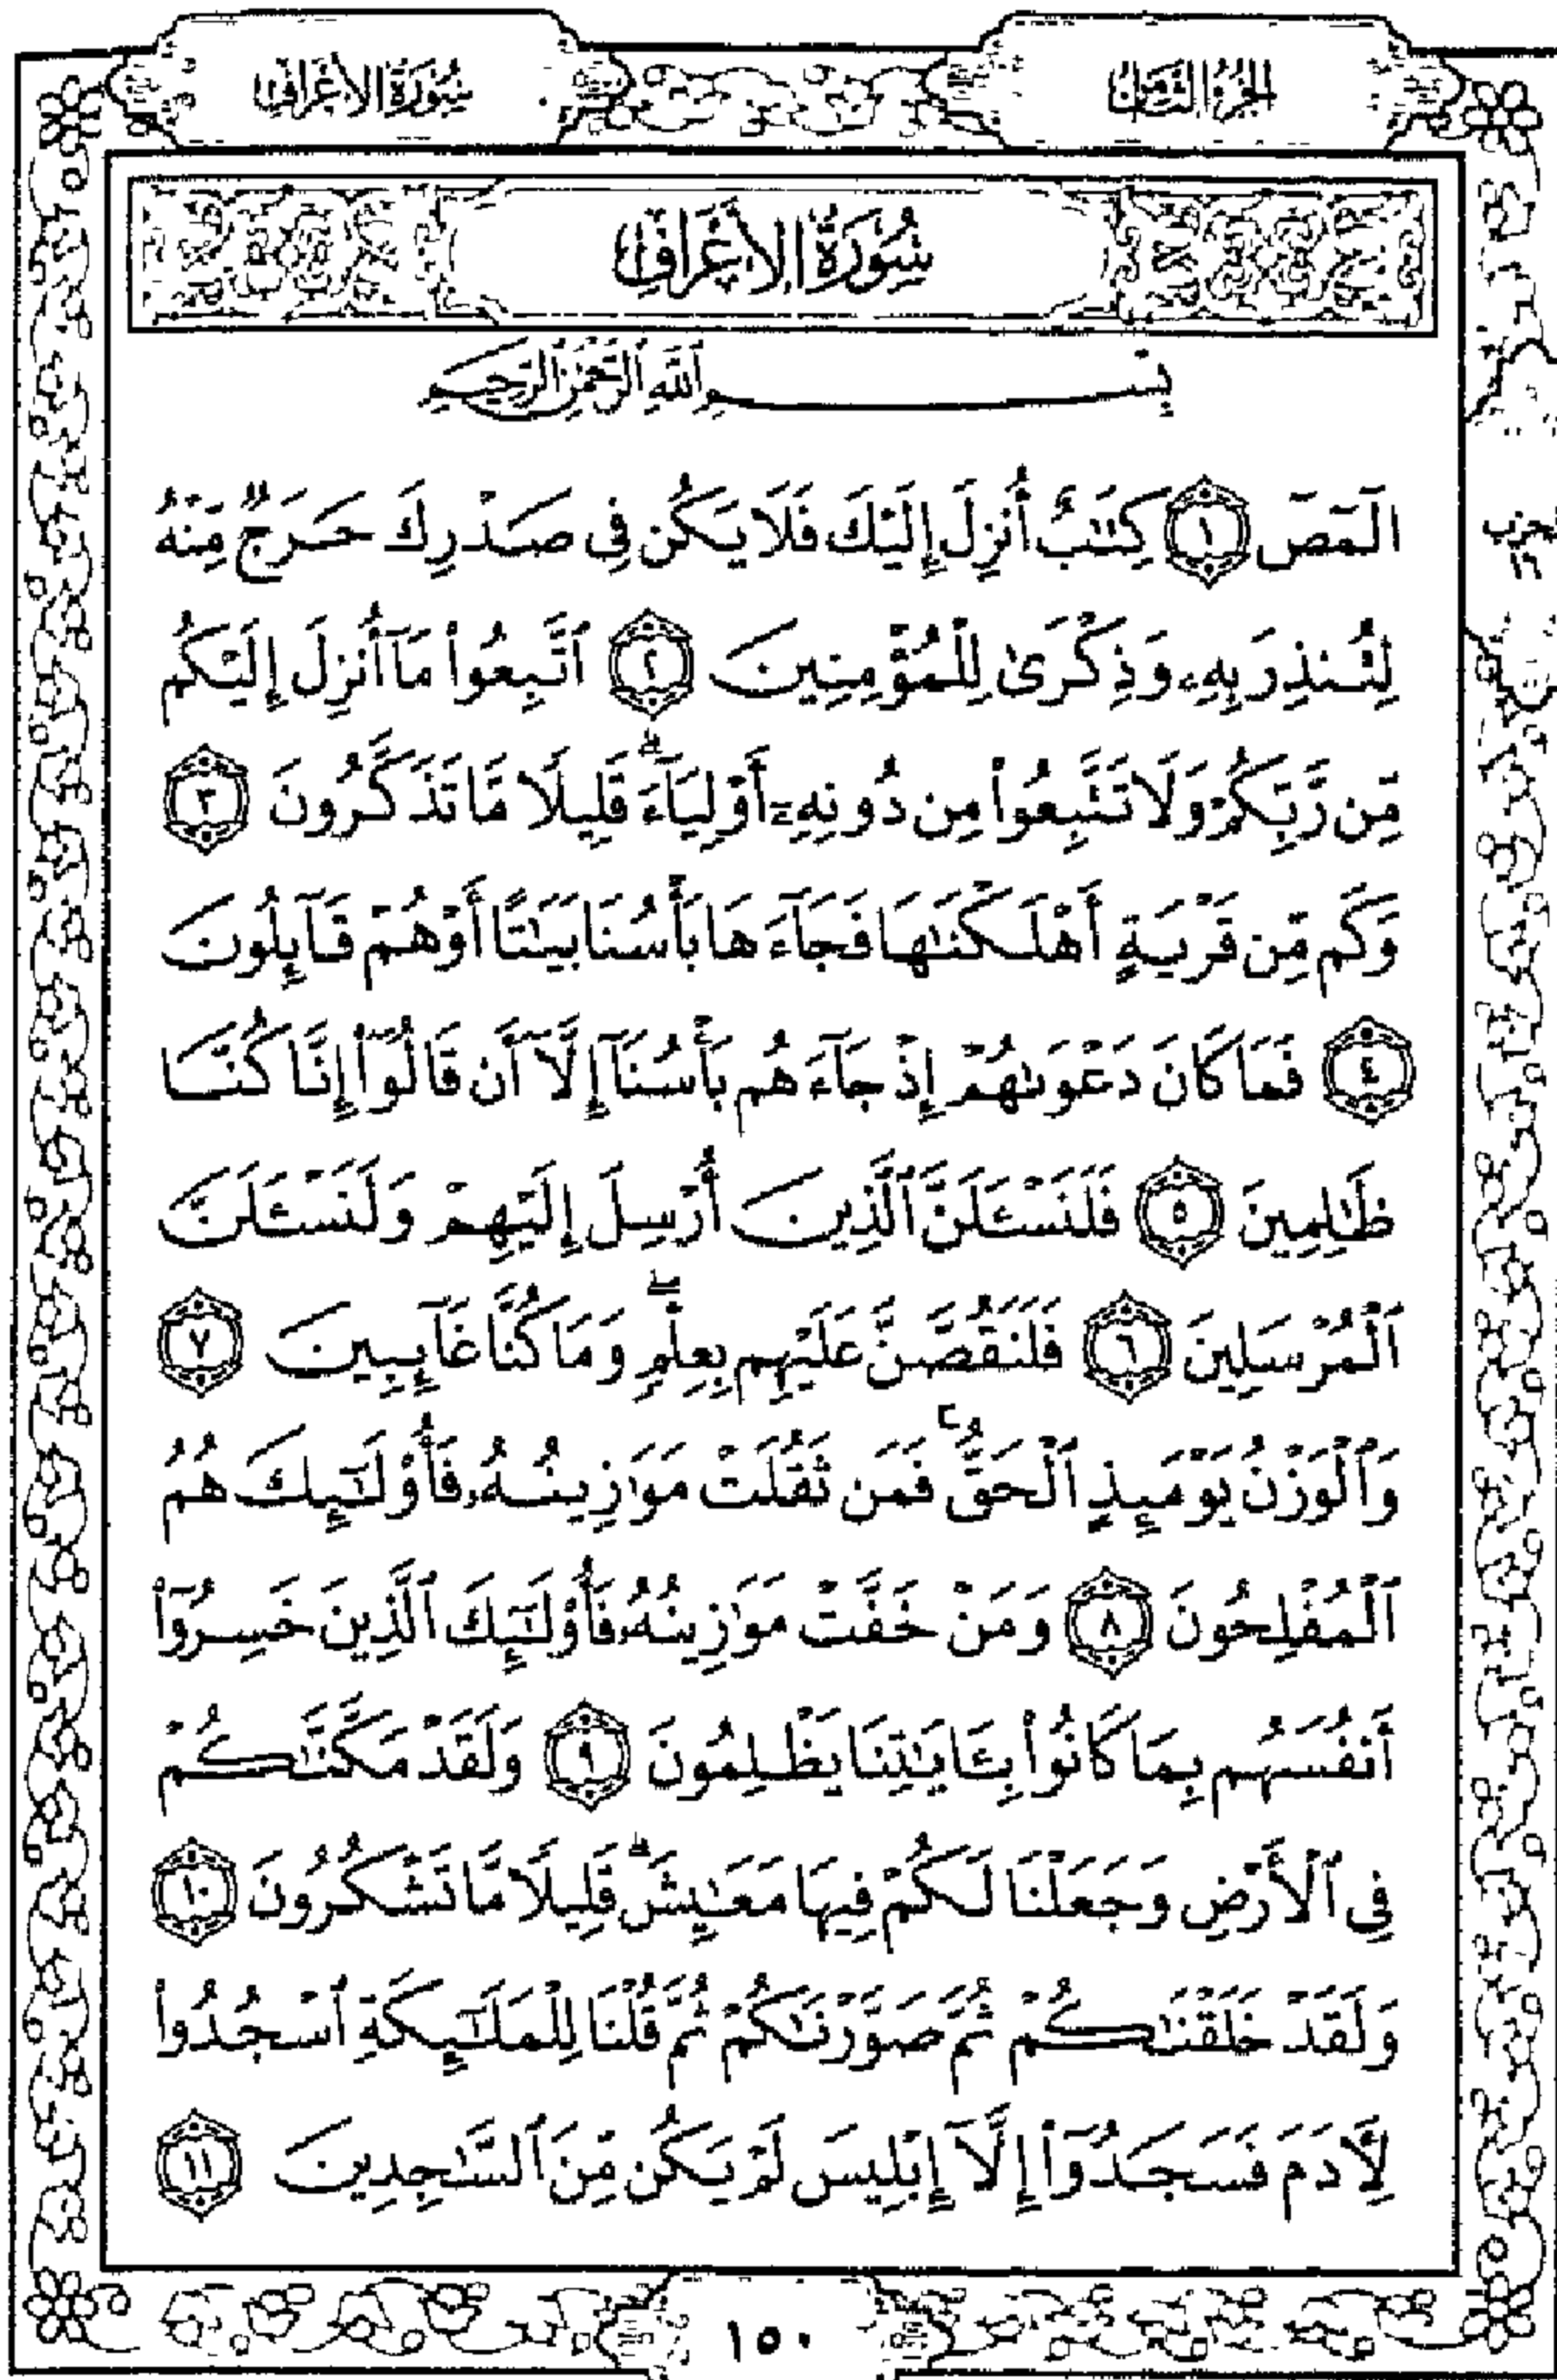 الجزء الثامن
سورة الأعراف
سُورَةُ الأَعْرَافِ
بِسْمِ ٱللَّهِ ٱلرَّحْمَٰنِ ٱلرَّحِيمِ
الٓمٓصٓ ١ كِتَٰبٌ أُنزِلَ إِلَيْكَ فَلَا يَكُن فِى صَدْرِكَ حَرَجٌ مِّنْهُ
لِتُنذِرَ بِهِۦ وَذِكْرَىٰ لِلْمُؤْمِنِينَ ٢ ٱتَّبِعُوا۟ مَآ أُنزِلَ إِلَيْكُم
مِّن رَّبِّكُمْ وَلَا تَتَّبِعُوا۟ مِن دُونِهِۦٓ أَوْلِيَآءَ ۗ قَلِيلًا مَّا تَذَكَّرُونَ ٣
وَكَم مِّن قَرْيَةٍ أَهْلَكْنَٰهَا فَجَآءَهَا بَأْسُنَا بَيَٰتًا أَوْ هُمْ قَآئِلُونَ
٤ فَمَا كَانَ دَعْوَىٰهُمْ إِذْ جَآءَهُم بَأْسُنَآ إِلَّآ أَن قَالُوٓا۟ إِنَّا كُنَّا
ظَٰلِمِينَ ٥ فَلَنَسْـَٔلَنَّ ٱلَّذِينَ أُرْسِلَ إِلَيْهِمْ وَلَنَسْـَٔلَنَّ
ٱلْمُرْسَلِينَ ٦ فَلَنَقُصَّنَّ عَلَيْهِم بِعِلْمٍ ۖ وَمَا كُنَّا غَآئِبِينَ ٧
وَٱلْوَزْنُ يَوْمَئِذٍ ٱلْحَقُّ ۚ فَمَن ثَقُلَتْ مَوَٰزِينُهُۥ فَأُو۟لَٰٓئِكَ هُمُ
ٱلْمُفْلِحُونَ ٨ وَمَنْ خَفَّتْ مَوَٰزِينُهُۥ فَأُو۟لَٰٓئِكَ ٱلَّذِينَ خَسِرُوٓا۟
أَنفُسَهُم بِمَا كَانُوا۟ بِـَٔايَٰتِنَا يَظْلِمُونَ ٩ وَلَقَدْ مَكَّنَّٰكُمْ
فِى ٱلْأَرْضِ وَجَعَلْنَا لَكُمْ فِيهَا مَعَٰيِشَ ۗ قَلِيلًا مَّا تَشْكُرُونَ ١٠
وَلَقَدْ خَلَقْنَٰكُمْ ثُمَّ صَوَّرْنَٰكُمْ ثُمَّ قُلْنَا لِلْمَلَٰٓئِكَةِ ٱسْجُدُوا۟
لِـَٔادَمَ فَسَجَدُوٓا۟ إِلَّآ إِبْلِيسَ لَمْ يَكُن مِّنَ ٱلسَّٰجِدِينَ ١١
١٥٠